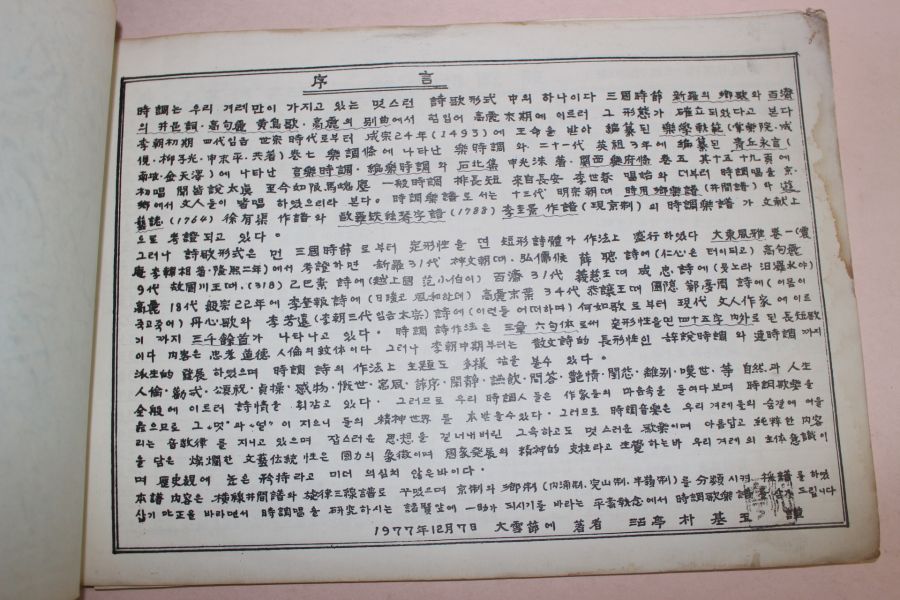 序 言
時調는 우리 겨레만이 가지고 있는 멋스런 詩歌形式 中의 하나이다 三國時節 新羅의 鄕歌와 百濟
의 井邑詞·高句麗 黃鳥歌·高麗의 別曲에서 힘입어 高麗末期에 이르러 그 形態가 確立되었다고 본다
李朝初期 四代임금 世宗時代로부터 成宗24年(1493)에 王命을 받아 編纂된 樂學軌範(掌樂院·成
俔·柳子光·申末平·共著)卷七 樂調條에 나타난 樂時調와 二十一代 英祖3年에 編纂된 靑丘永言(
南坡·金天澤)에 나타난 言樂時調·編樂時調와 石北集 申光洙 著·關西樂府條 卷五 其十五 에
初唱 聞皆說太眞 至今如恨馬嵬塵 一般時調 排長短 來自長安 李世春 唱始와 더부터 時調唱을 京·
鄕에서 文人들이 皆唱 하였으리라 본다. 時調樂譜로서는 十三代 明宗朝때 時用鄕樂譜(井間譜)와 遊
藝誌(1764)徐有榘 作譜와 歐羅鉄絲琴字譜(1788)李圭景 作譜(現京制)의 時調樂譜가 文献上
으로 考證되고 있다.
그러나 詩歌形式은 먼 三國時節로부터 定形性을 띤 短形詩體가 作法上 盛行하였다 大東風雅 卷一
李輝相著·隆熙二年)에서 考證하면 新羅31代 神文朝때·弘儒侯 薛聰 詩에(仁心은 터이되고)高句麗
9代 故國川王때·(318)乙巴素 詩에(越上國 范小伯이)百濟31代 義慈王때 成忠 詩에(뭇노라 汨羅水야)
高麗 18代 毅宗22年에 李 詩에 高麗末葉 34代 恭讓王때 圃隱 鄭夢周 詩에(이몸이
죽고죽어)丹心歌와 李芳遠(李朝三代임금太宗)詩에(이런들 어떠하며)何如歌로부터 現代 文人作家에 이르
기까지 三千餘首가 나타나고 있다. 時調 詩作法은 三章 六句体로써 定形性을띤 四十五字 內外로 된 長短歌
이다 內容은 忠孝 道德 人倫의 이다 그러나 李朝中期부터는 散文詩的 長形性인 辞說時調와 連時調까지
派生的 發展하였으며 時調詩의 作法上 主題도 多樣 볼수 있다.
人倫·勸式·頌祝·貞操·感物·慨世·寓風·詠序·閑靜·謠飮·問答·艶情·閨恋·離別·嘆世·等 自然과 人生
全般에 이르러 詩情을 휘감고 있다. 그러므로 우리 時調人들은 作家들의 마음속을 들여다보며 時調歌樂을
읊으므로 그«멋»과«얼»이 지으니 들의 精神世界를 本받을수있다. 그러므로 時調音樂은 우리겨레들의 숨결에 어울
리는 音數律를 지니고 있으며 잡스러운 思想을 걷너내버린 그윽하고도 멋스러운 歌樂이며 아름답고 純粹한 內容
을 담은 燦爛한 文藝伝統性은 國力의 象徵이며 國家發展의 精神的 支柱라고 生覺하는바 우리겨레의 主体意識이
며 歷史観에 높은 矜持라고 미더 의심치 않은바이다.
本譜 內容은 橫線井間譜와 旋律三線譜로 꾸몄으며 京制와 鄕制(內浦制·完山制·半鄕制)를 分類시켜 採譜를 하였
삽기 叱正을 바라면서 時調唱을 硏究하시는 諸賢앞에 一助가 되시기를 바라는 平素執念에서 時調歌樂譜를 드립니다
1977年12月7日 大雪節에 著者 亭 朴 基 玉 譁